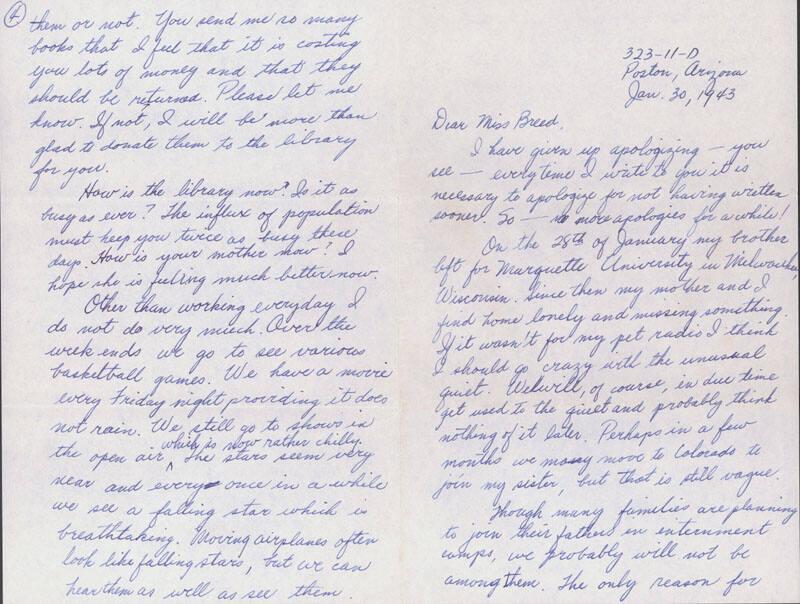 4
them or not. You send me so many
books that I feel that it is costing
you lots of money and that they
should be returned. Please let me
know. If not, I will be more than
glad to donate them to the library
for you.
How is the library now? Is it as
busy as ever? The influx of population
must keep you twice as busy these
days. How is your mother now? I
hope she is feeling much better now.
Other than working everyday I
do not do very much. Over the
week ends we go to see various
basketball games. We have a movie
every Friday night providing it does
not rain. We still go to shows in
which is now rather chilly.
the open air ^ The stars seem very
near and every once in a while
we see a falling star which is
breathtaking. Moving airplanes often
look like falling stars, but we can
hear them as well as see them.
323-11-D
Poston, Arizona
Jan. 30, 1943
Dear Miss Breed,
I have given up apologizing — you
see — everytime I write to you it is
necessary to apologize for not having written
sooner. So — no more apologies for a while!
On the 28th of January my brother
left for Marquette University in Milwaukee,
Wisconsin. Since then my mother and I
find home lonely and missing something.
If it wasn't for my pet radio I think
I should go crazy with the unusual
quiet. We will, of course, in due time
get used to the quiet and probably think
nothing of it later. Perhaps in a few
months we may move to Colorado to
join my sister, but that is still vague.
Though many families are planning
to join their fathers in enternment
camps, we probably will not be
among them. The only reason for